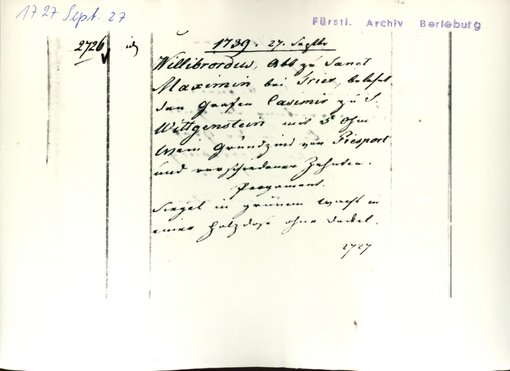 1727 Sept. 27
Fürstl. Archiv Berleburg
2726
1739. 27. Septbr
Willibrordus, Abt zu Sanct
Maximin bei Trier, belehnt
den Grafen Casimir zu S.
Wittgenstein mit 5 Ohm
Wein Grundzins von Piesport
und verschiedenen Zehnten.
Pergament.
Siegel in grünem Wachs in
einer Holzdose ohne Deckel.
1727